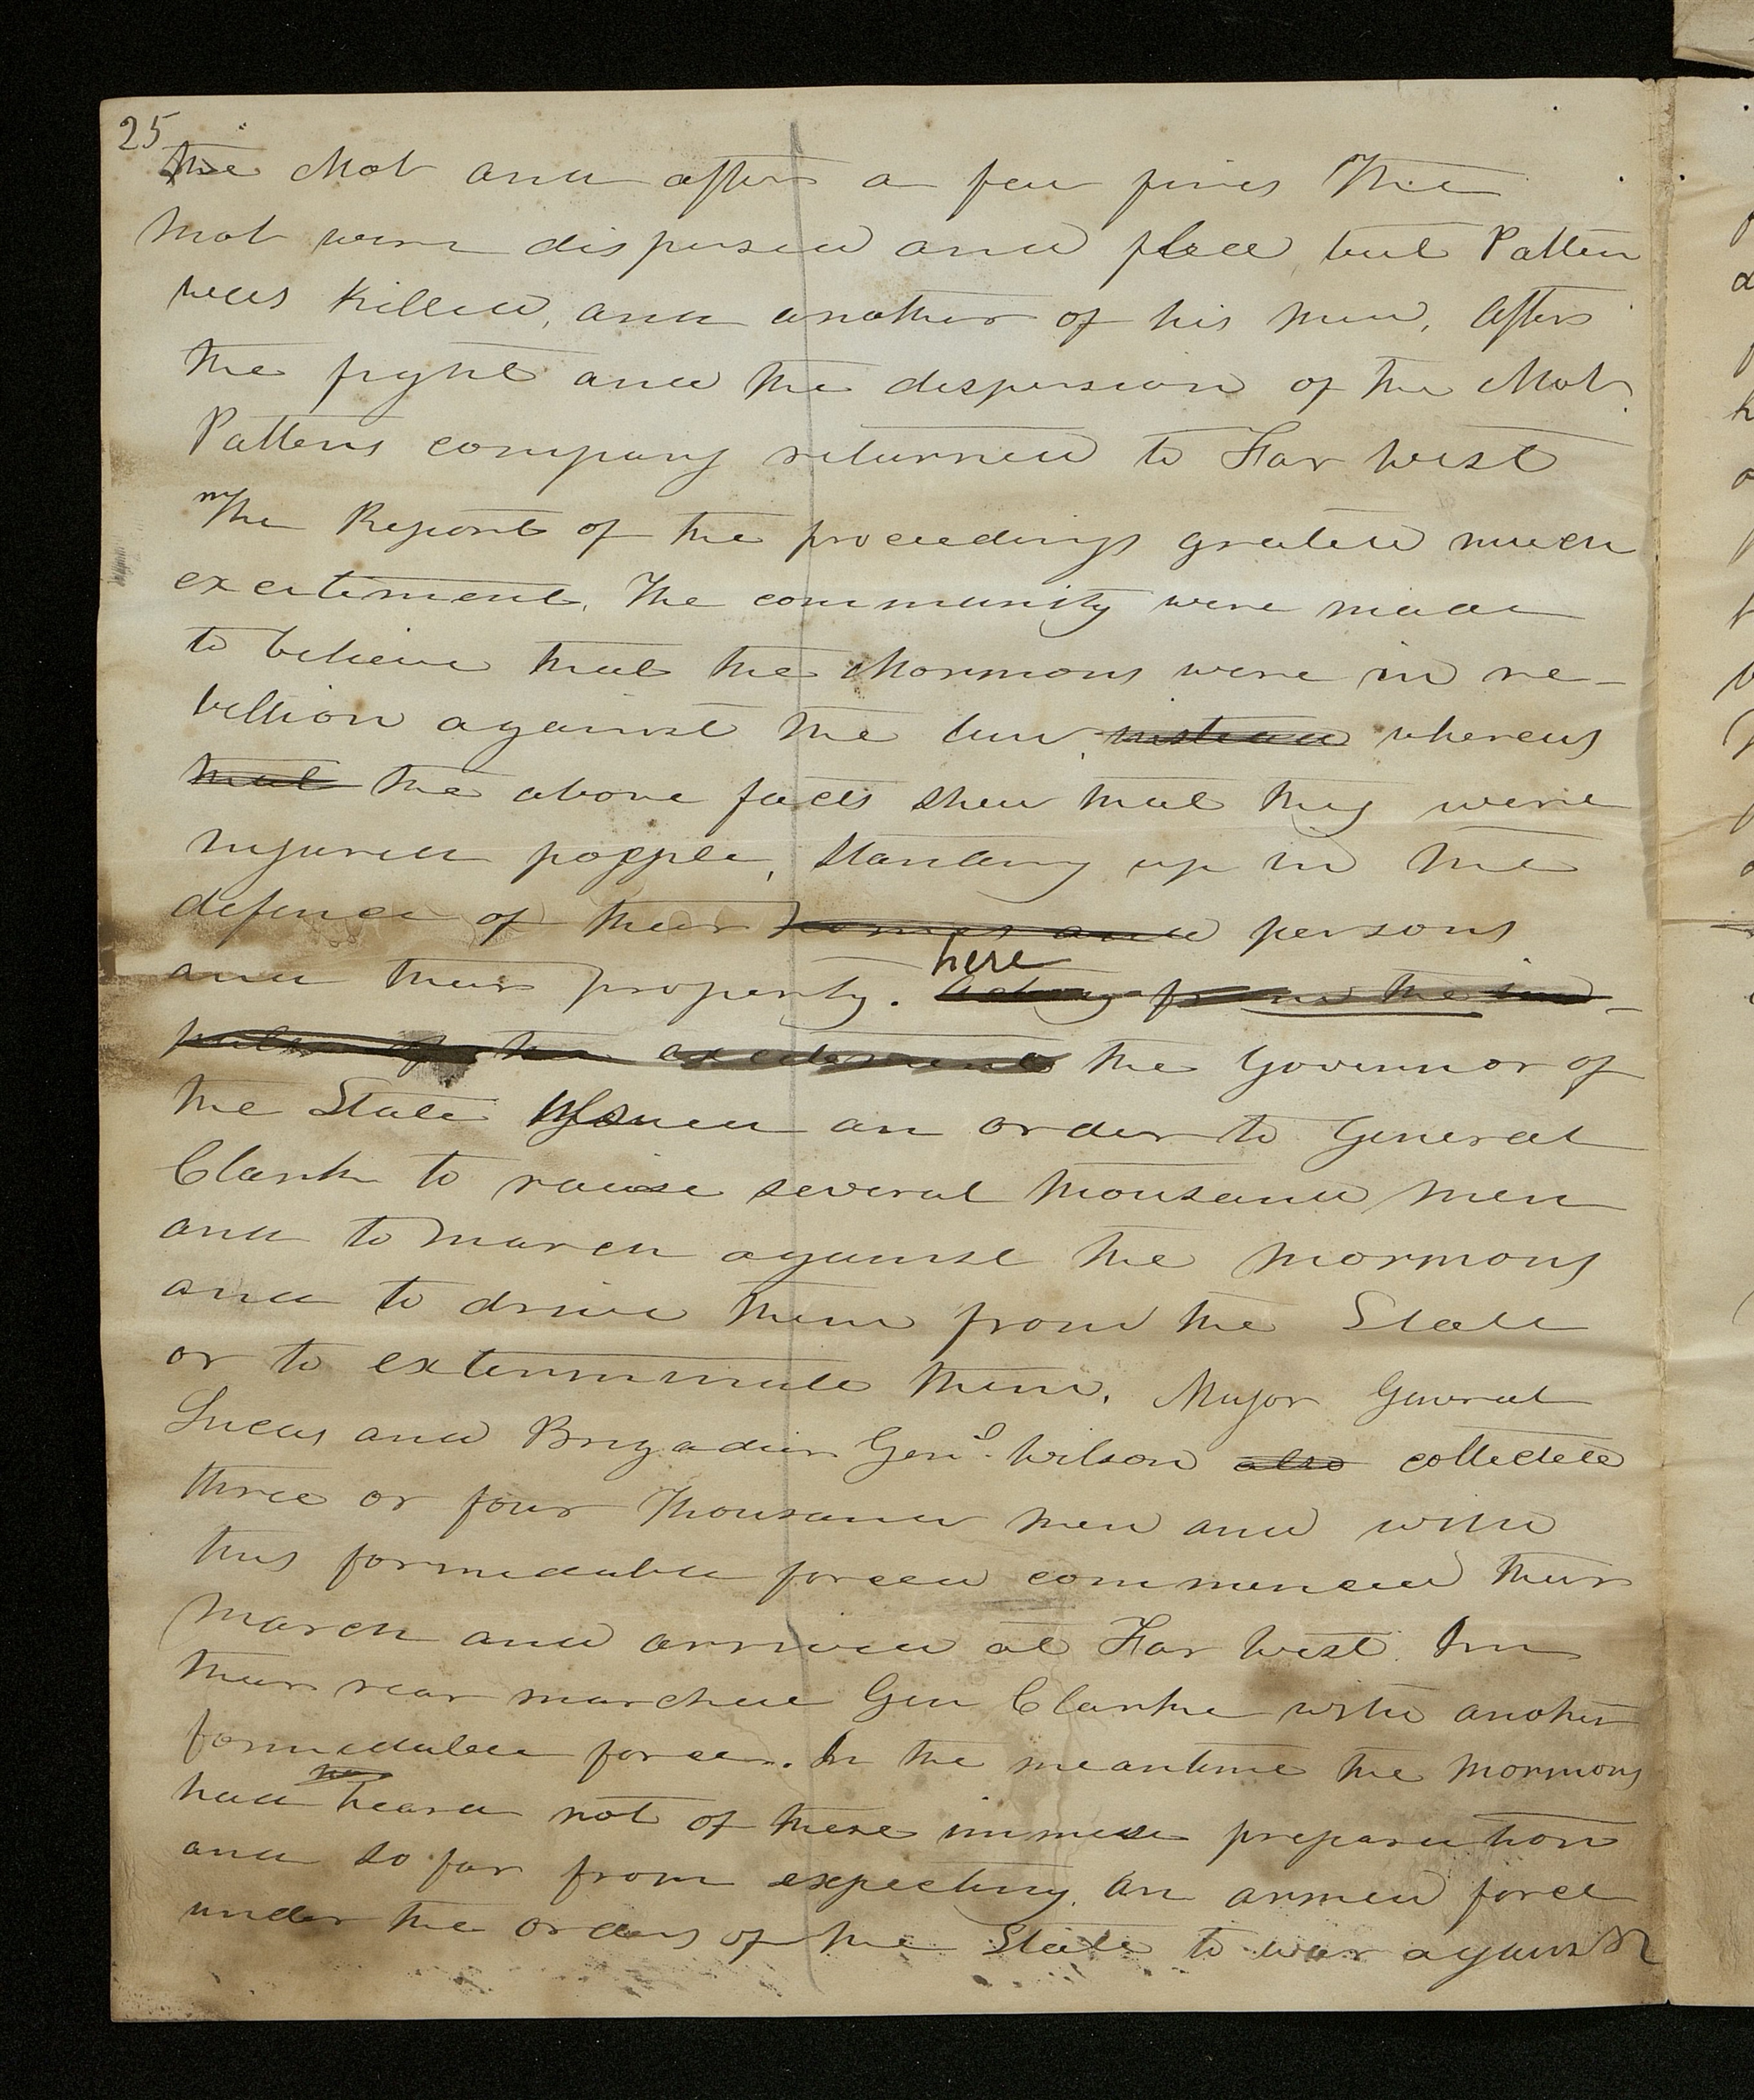 25
the Mob and after a few fires The
mob were dispersed and fled, but Patten
was killed, and another of his men, After
the fight and the dispersion of the Mob.
Pattens company returned to Far West
The Report of the proceedings created much
excitement. The community were made
to believe that the Mormons were in re-
bellion against the law, instead whereas
that the above facts shew that they were
injured people, standing up in the
defence of their homes and persons
and their property. here Acting from the im-
pulse of the excitement the Governor of
the State issued an order to General
Clark to raise several thousand men
and to march against the mormons
and to drive them from the State
or to exterminate them. Major General
Lucas and Brigadier Genl. Wilson also collected
three or four Thousand men and with
this formidable force commenced their
march and arrived at Far West. In
their rear marched Gen Clarke with another
formidable force. In the meantime the Mormons
had no heard not of these immense preparation
and so far from expecting an armed force
under the orders of the State to war against